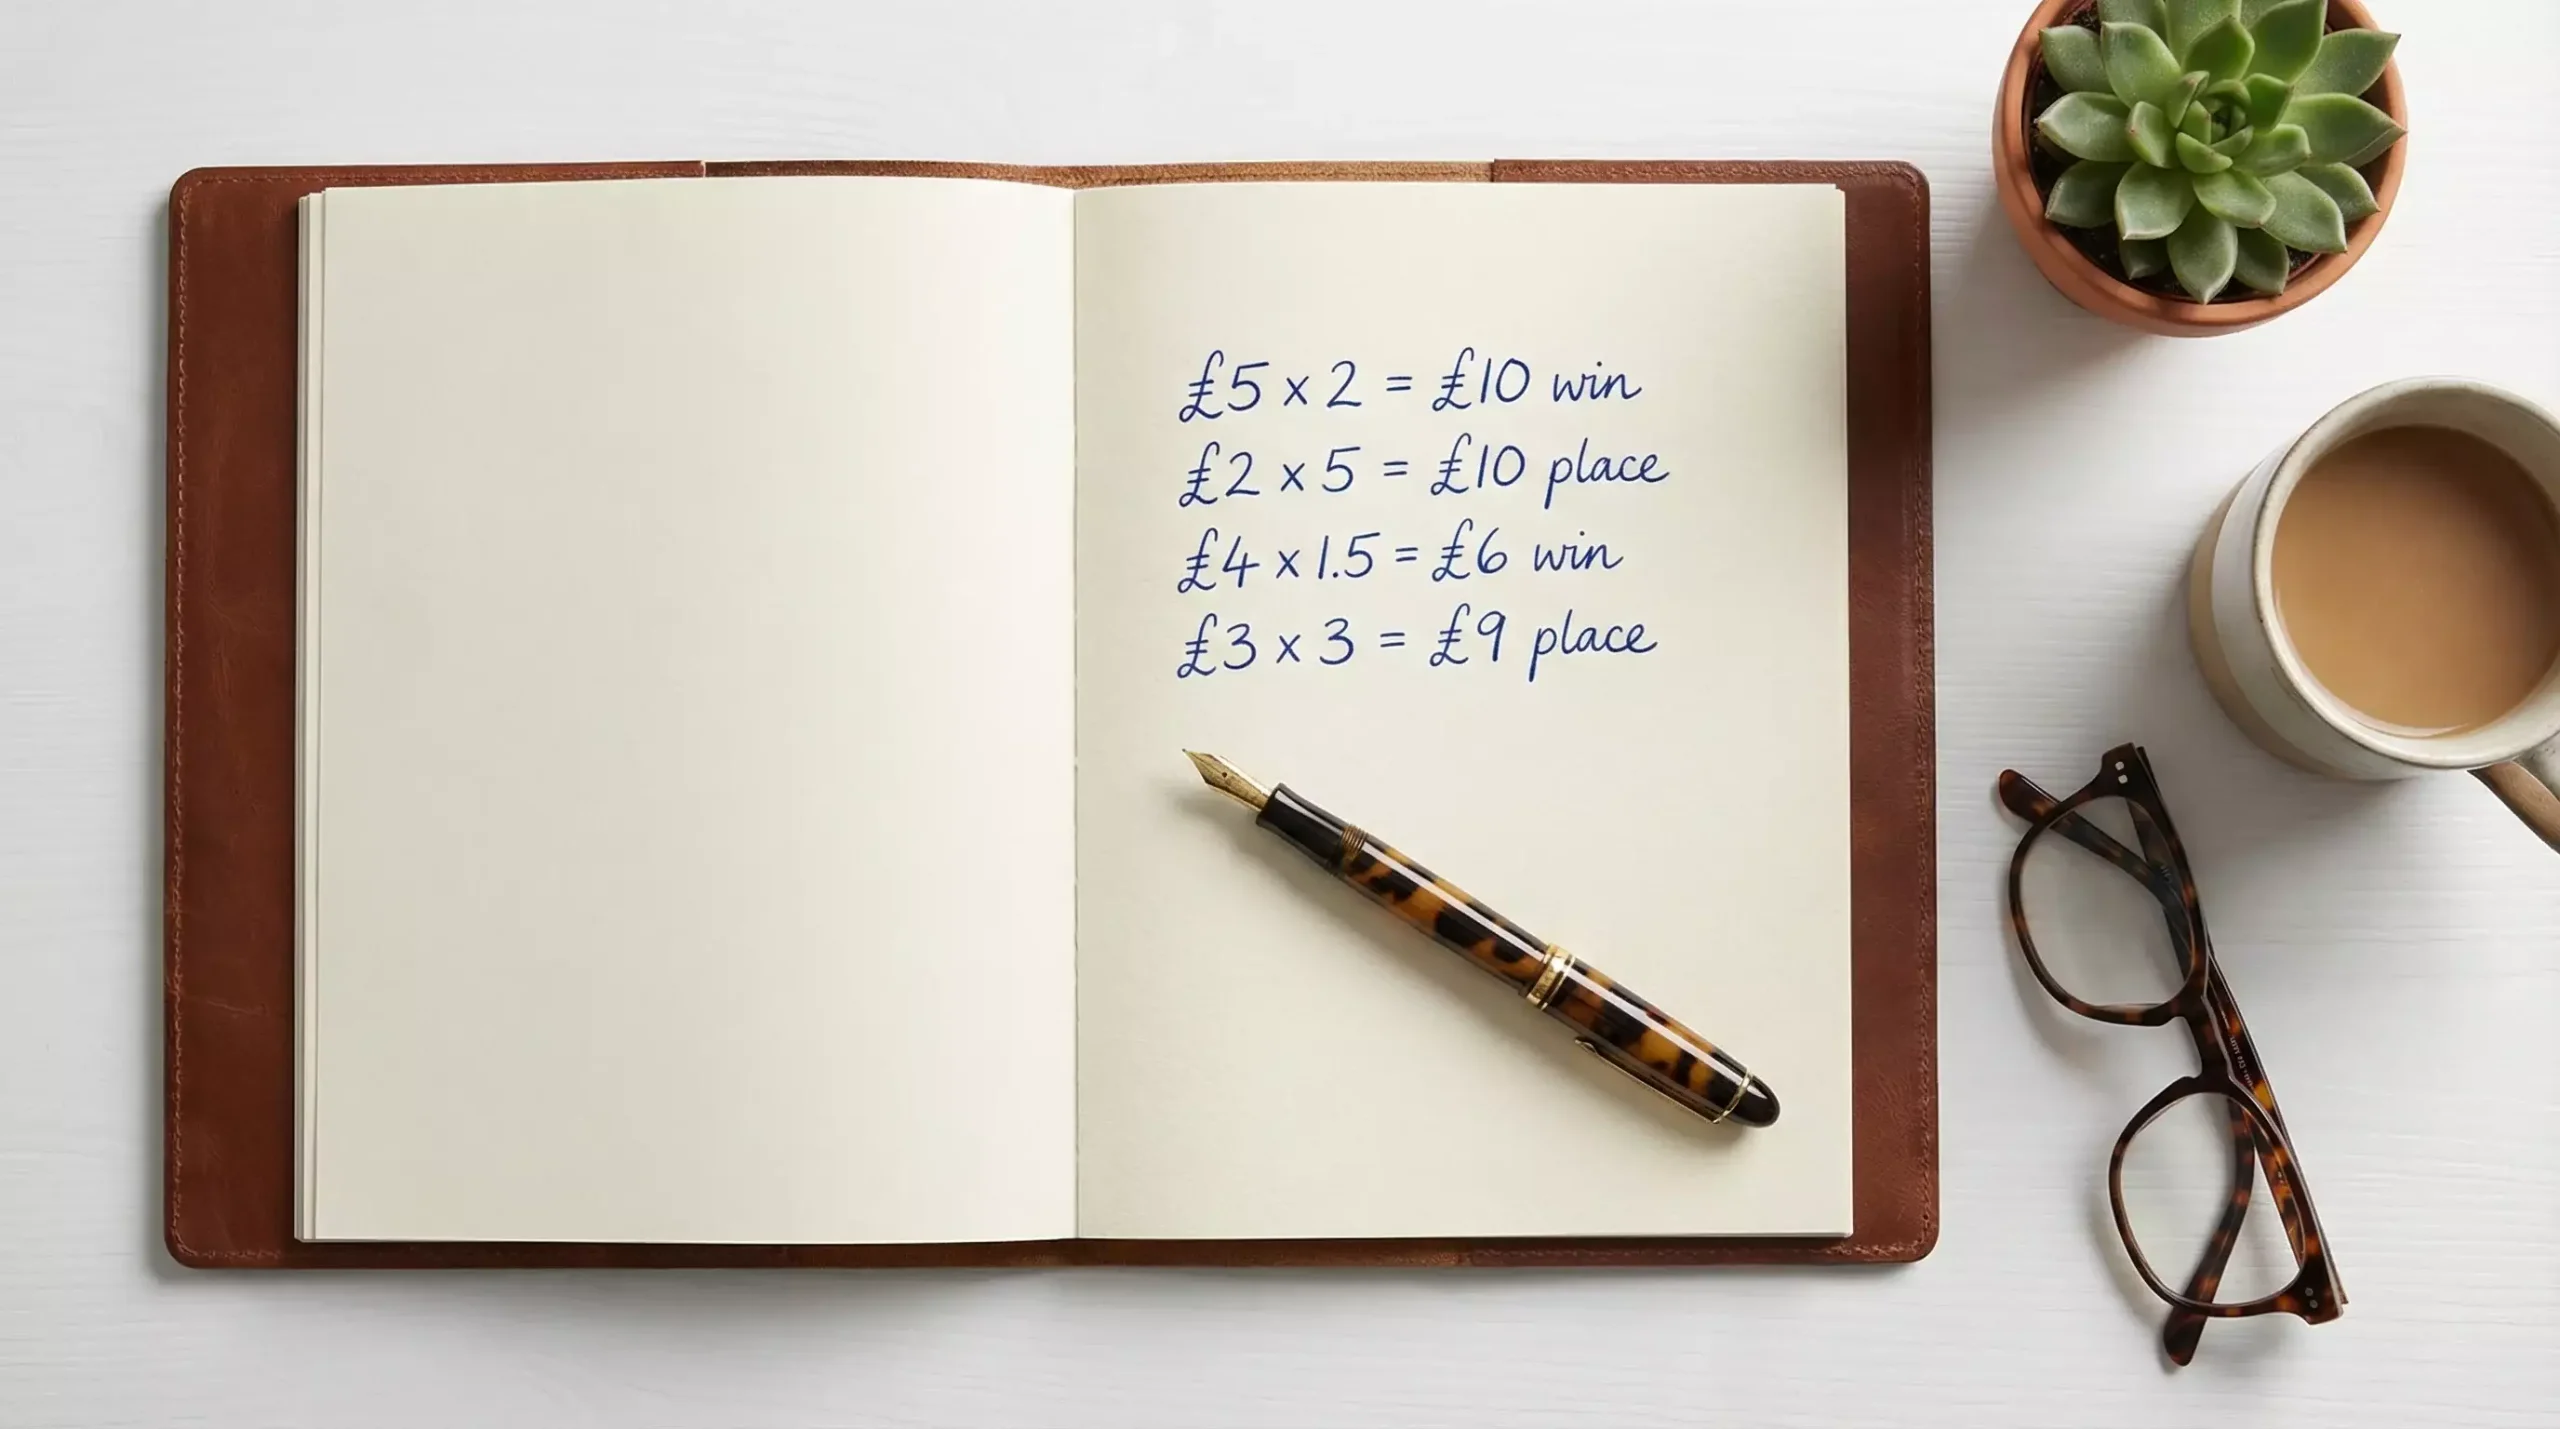 £5 x 2 = £10 win
£2 x 5 = £10 place
£4 x 1.5 = £6 win
£3 x 3 = £9 place